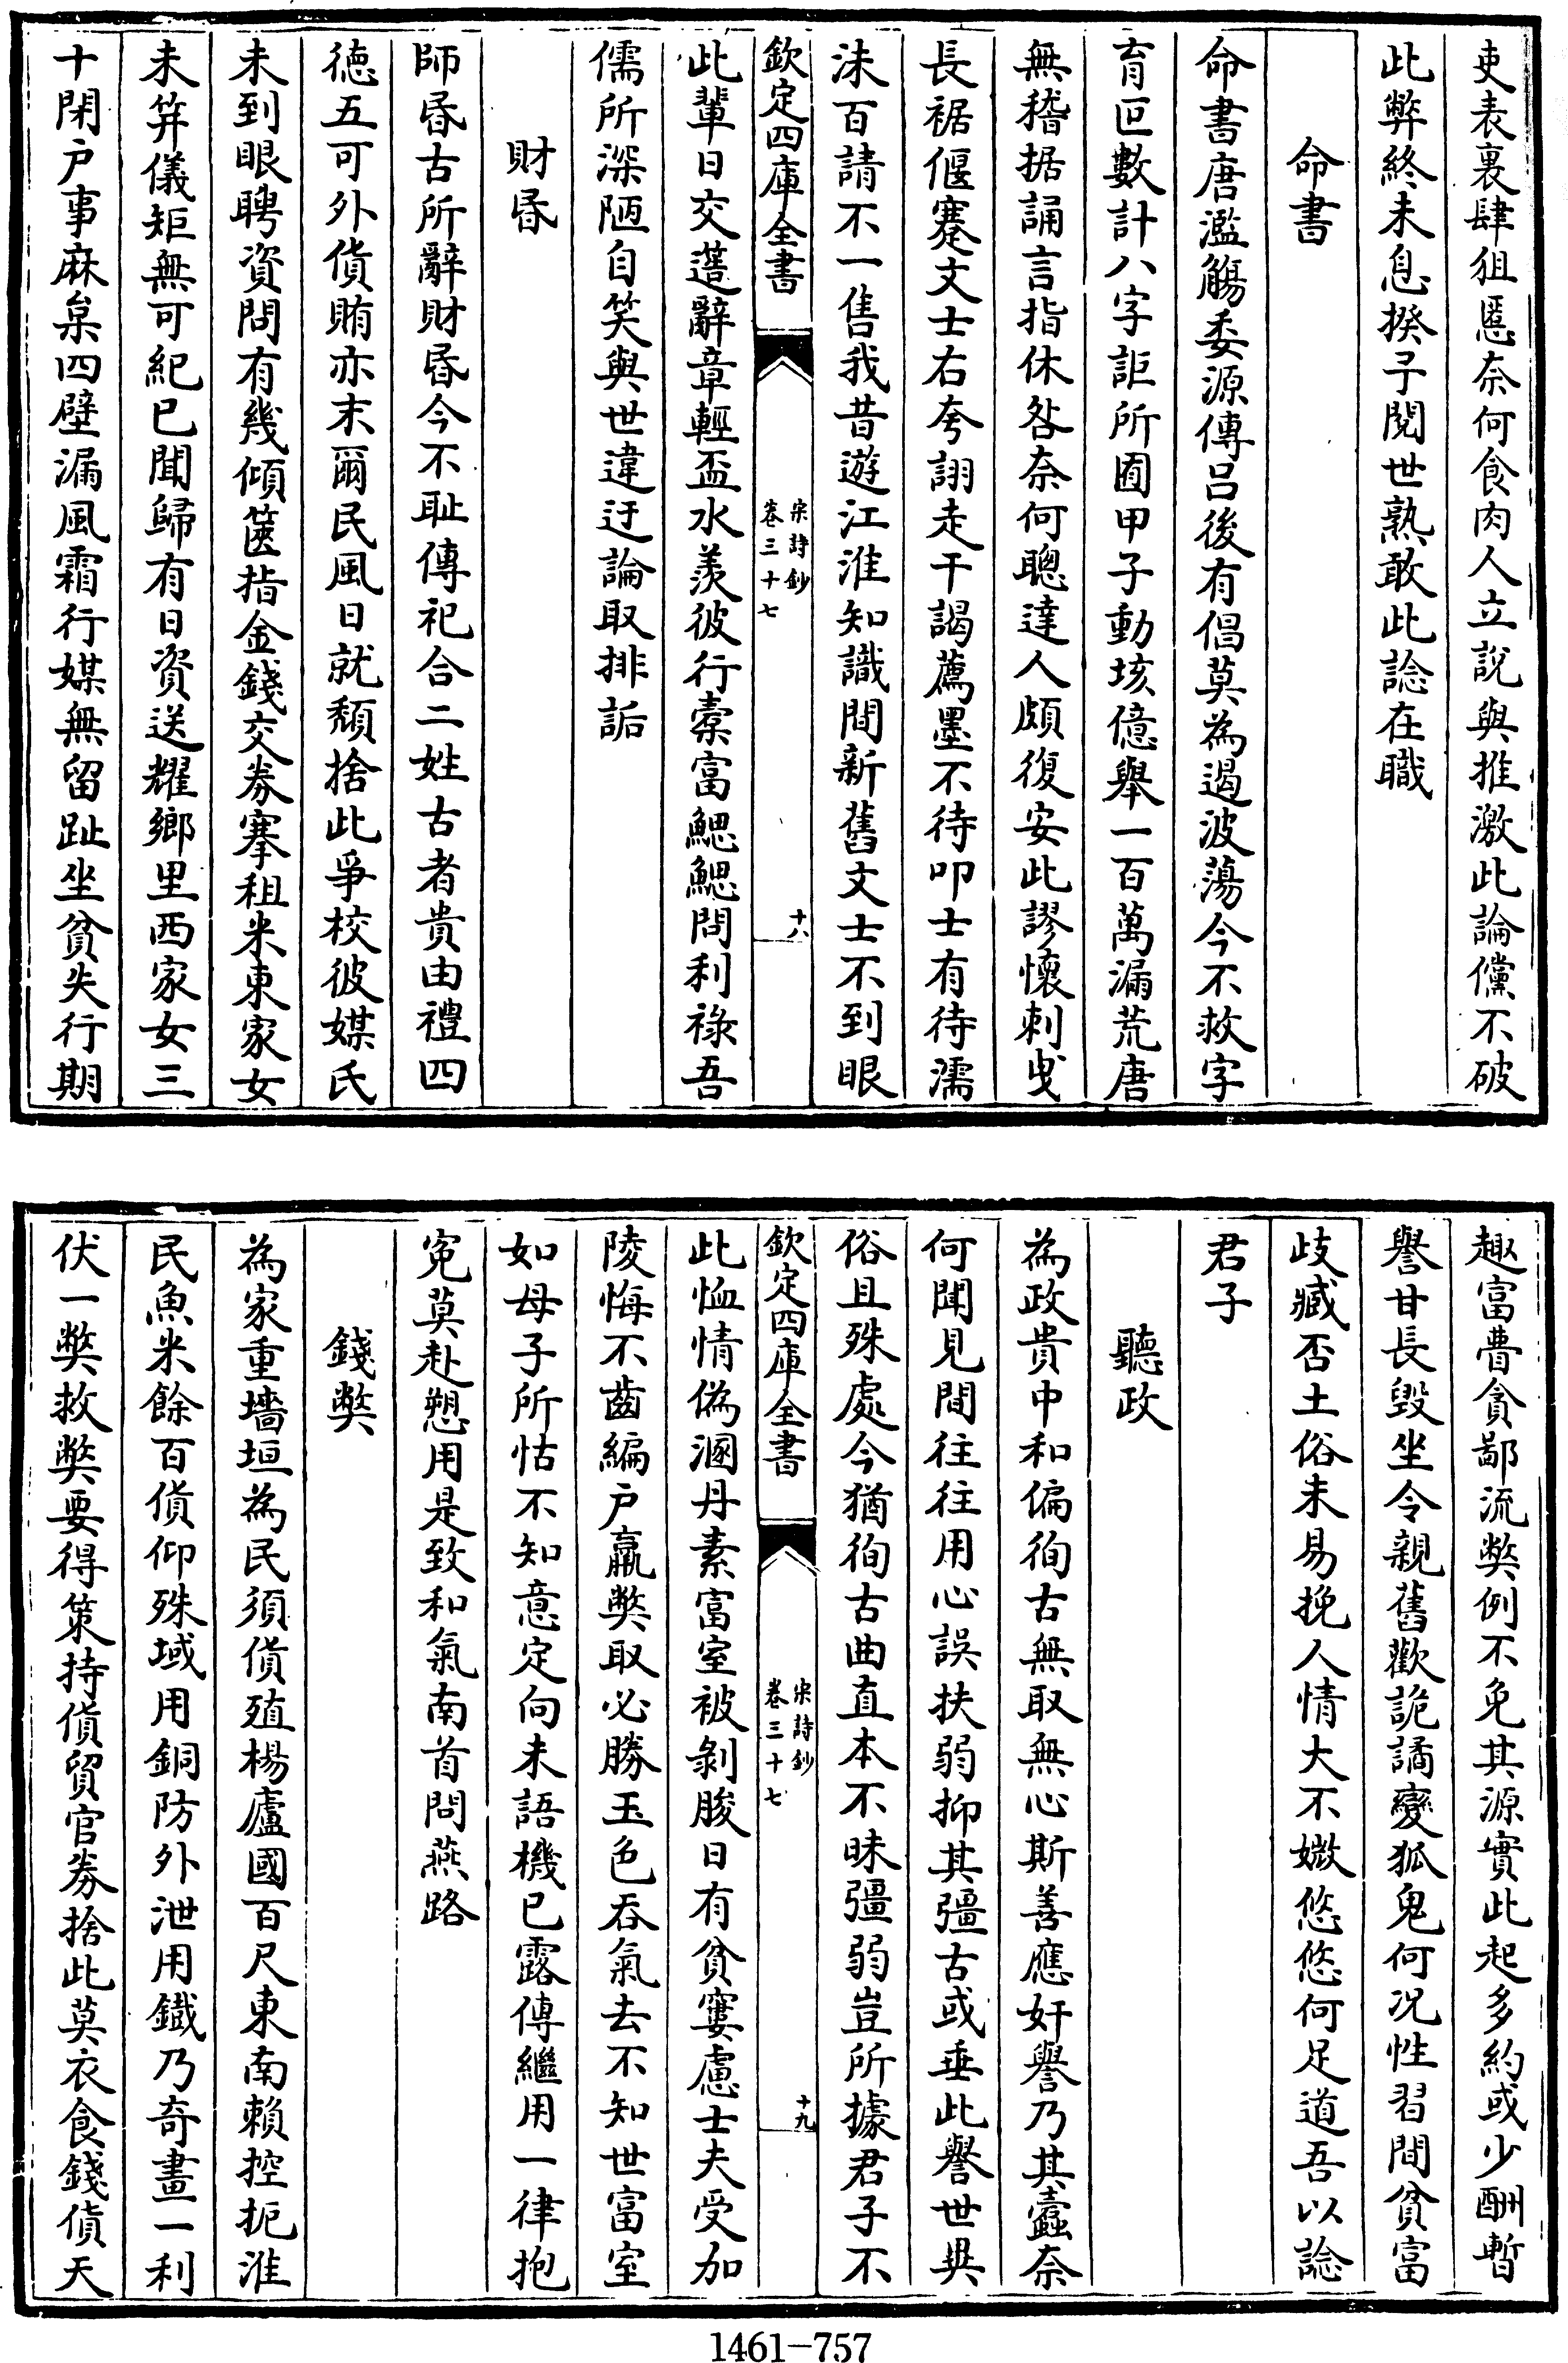 吏表裏肆狙慝奈何食肉人立説與推激此論儻不破
此弊終未息揆予閱世熟敢此諗在職
命書
命書唐濫觴委源傳吕後有倡莫為遏波蕩今不救字
育叵數計八字詎所囿甲子動垓億舉一百萬漏荒唐
無稽据誦言指休咎奈何聰達人頗復安此謬懷刺曵
長裾偃蹇文士右夸詡走干謁薦墨不待叩士有待濡
沬百請不一售我昔遊江淮知識間新舊文士不到眼
欽定四庫全書
宋詩鈔
卷三十七
十八
此輩日交遘辭章輕盃水羡彼行橐富鰓鰓問利祿吾
儒所深陋自笑與世違迂論取排詬
財昏
師昏古所辭財昏今不恥傳祀合二姓古者貴由禮四
徳五可外貨賄亦末爾民風日就頽捨此爭校彼媒氏
未到眼聘資問有幾傾篋指金錢交劵搴租米東家女
未笄儀矩無可紀已聞歸有日資送耀鄉里西家女三
十閉户事麻枲四壁漏風霜行媒無留趾坐貧失行期
趣富費貪鄙流弊例不免其源實此起多約或少酬暫
譽甘長毁坐令親舊歡詭譎變狐鬼何况性習間貧富
歧臧否土俗未易挽人情大不媺悠悠何足道吾以諗
君子
聽政
為政貴中和偏徇古無取無心斯善應奸譽乃其蠧奈
何聞見間往往用心誤扶弱抑其彊古或垂此譽世異
俗且殊處今猶徇古曲直本不昧彊弱豈所據君子不
欽定四庫全書
宋詩鈔
卷三十七
十九
此恤情偽溷丹素富室被剝朘日有貧窶慮士夫受加
陵悔不齒編户羸獘取必勝玉色吞氣去不知世富室
如母子所怙不知意定向未語機已露傳繼用一律抱
寃莫赴愬用是致和氣南首問燕路
錢獘
為家重墻垣為民須貨殖楊廬國百尺東南賴控扼淮
民魚米餘百貨仰殊域用銅防外泄用鐵乃奇畫一利
伏一獘救獘要得策持貨貿官劵捨此莫衣食錢貨天
1461-757